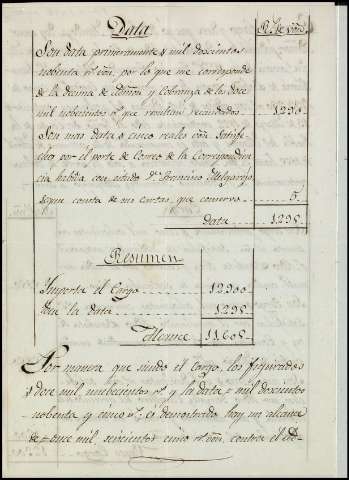 Data
R.s de von
Son data primeramente mil doscientos
nobenta r.s von, por lo que me corresponde
de la decima de Admon y Cobranza de los doce
mil nobecientos r.s que resultan recaudados. 1290
Son mas data cinco reales von satisfe-
chos por el porte de Correo de la Correspondien-
cia habida con citado D.n Francisco Melgarejo,
segun consta de sus cartas, que conservo 5.
Data 1295
Resumen
Importa el Cargo 12900
Son la data 1295
Alcance 11.605
Por manera que siendo el Cargo, los figurados
doce mil nuebecientos r.s y la data mil doscientos
nobenta y cinco r.s es demostrado hay un alcance
de once mil seiscientos cinco r.s von, contra el